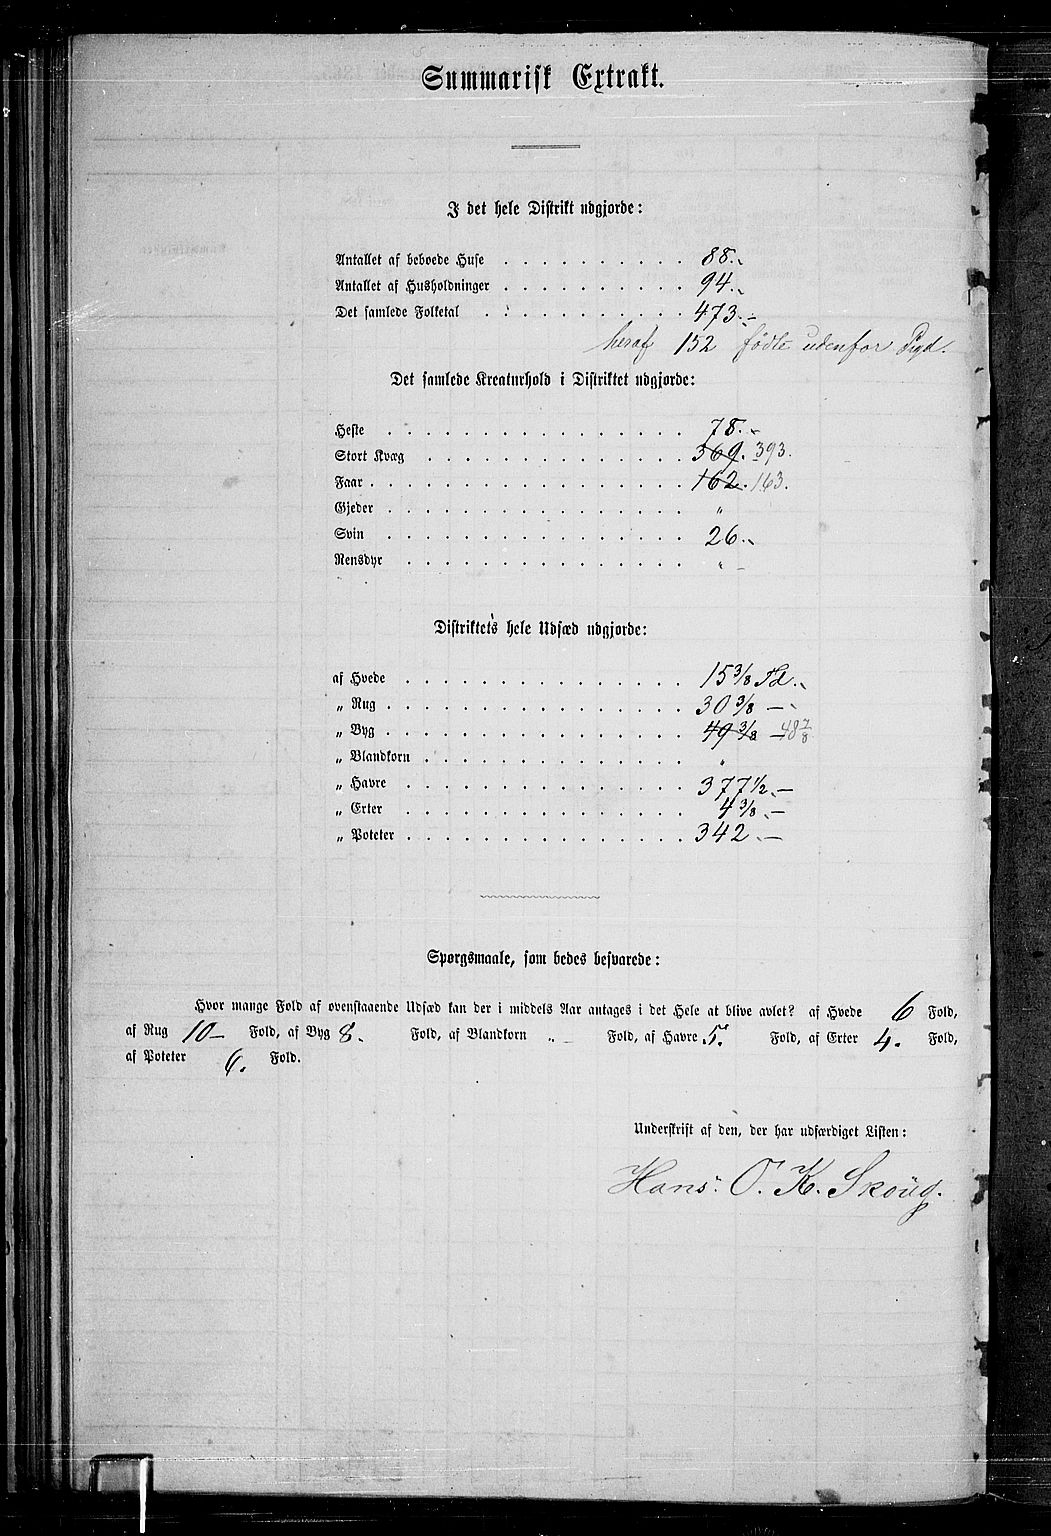 Summarisk Extrakt.
I det hele Distrikt udgjorde:
Antallet af beboede Huse . . . . . . . . . . 88.
Antallet af Husholdninger . . . . . . . . . . 94.
Det samlede Folketal . . . . . . . . . . . 473.
heraf 152 fødte udenfor
Det samlede Kreaturhold i Distriktet udgjorde:
Heste . . . . . . . . . . . . . . . . 78.
Stort Kvæg . . . . . . . . . . . . . . 369. 393.
Faar . . . . . . . . . . . . . . . . . 162. 163.
Gjeder . . . . . . . . . . . . . . . . "
Svin . . . . . . . . . . . . . . . . 26.
Rensdyr . . . . . . . . . . . . . . . " –
Distriktets hele Udsæd udgjorde:
af Hvede . . . . . . . . . . . . . . . 15 3/8 Td.
„ Rug . . . . . . . . . . . . . . . . 30 3/8 –
„ Byg . . . . . . . . . . . . . . . . 49 3/8 – 48 7/8
„ Blandkorn . . . . . . . . . . . . . . "
„ Havre . . . . . . . . . . . . . . . 377 1/2 –
„ Erter . . . . . . . . . . . . . . . 4 3/8 –
„ Poteter . . . . . . . . . . . . . . . 342 –
Spørgsmaale, som bedes besvarede:
Hvor mange Fold af ovenstaaende Udsæd kan der i middels Aar antages i det Hele at blive avlet? af Hvede 6 Fold,
af Rug 10 – Fold, af Byg 8. Fold, af Blandkorn " – Fold, af Havre 5. Fold, af Erter 4. Fold,
af Poteter 6. Fold.
Underskrift af den, der har udfærdiget Listen:
Hans O. K. Skoug.